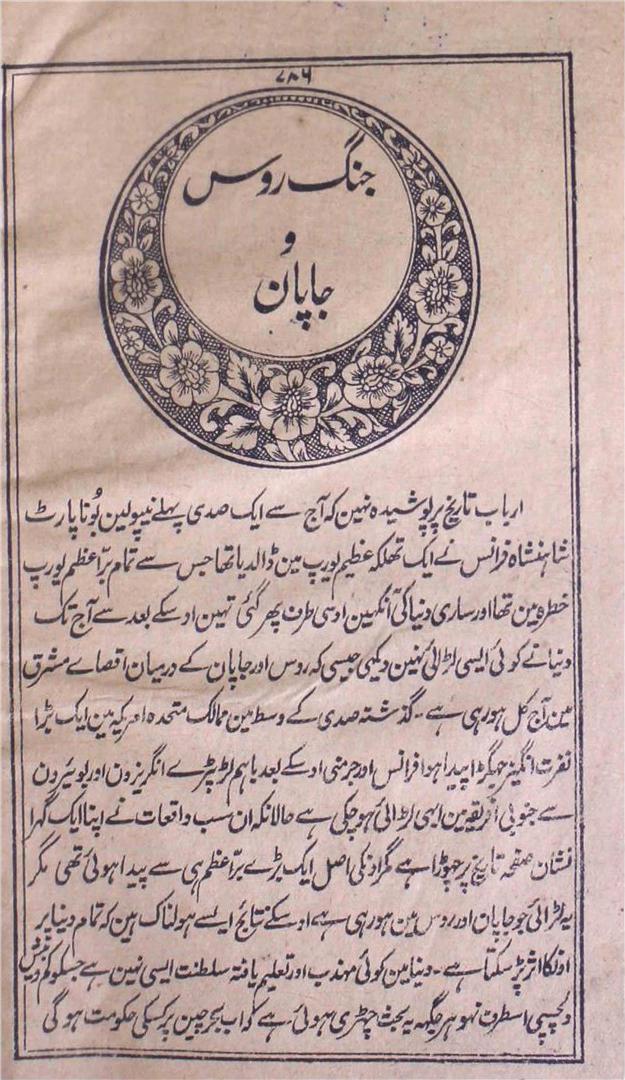 ۷۸۶
جنگ روس
و
جاپان
ارباب تاریخ پر پوشیدہ نہین کہ آج سے ایک صدی پہلے نیپولین بُوناپارٹ
شاہنشاہ فرانس نے ایک تھلکہ عظیم یورپ مین ڈالدیا تھا جس سے تمام برّاعظم یورپ
خطرہ مین تھا اور ساری دنیا کی آنکہین اوسی طرف پھر گئی تہین اوسکے بعد سے آج تک
دنیا نے کوئی ایسی لڑائی نہین دیکہی جیسی کہ روس اور جاپان کے درمیان اقصاے مشرق
مین آج کل ہورہی ہے۔ گذشتہ صدی کے وسط مین ممالک متحدہ امریکہ مین ایک بڑا
نفرت انگیز جہگڑا پیدا ہوا فرانس اور جرمنی اوسکے بعد باہم لڑ پڑے انگریزون اور بوئیرون
سے جنوبی افریقہ مین ابہی لڑائی ہوچکی ہے حالانکہ ان سب واقعات نے اپنا ایک گہرا
نشان صفحہ تاریخ پر چہوڑا ہے مگر اونکی اصل ایک بڑے برّاعظم ہی سے پیدا ہوئی تھی مگر
یہ لڑائی جو جاپان اور روس مین ہورہی ہے اوسکے نتایج ایسے ہولناک ہین کہ تمام دنیا پر
اونکا اثر پڑ سکتا ہے۔ دنیا مین کوئی مہذب اور تعلیم یافتہ سلطنت ایسی نہین ہے جسکو کم و بیش
دلچسپی اسطرف نہو ہر جگہہ یہ بحث چہڑی ہوئی ہے کہ اب بحر چین پر کسکی حکومت ہوگی